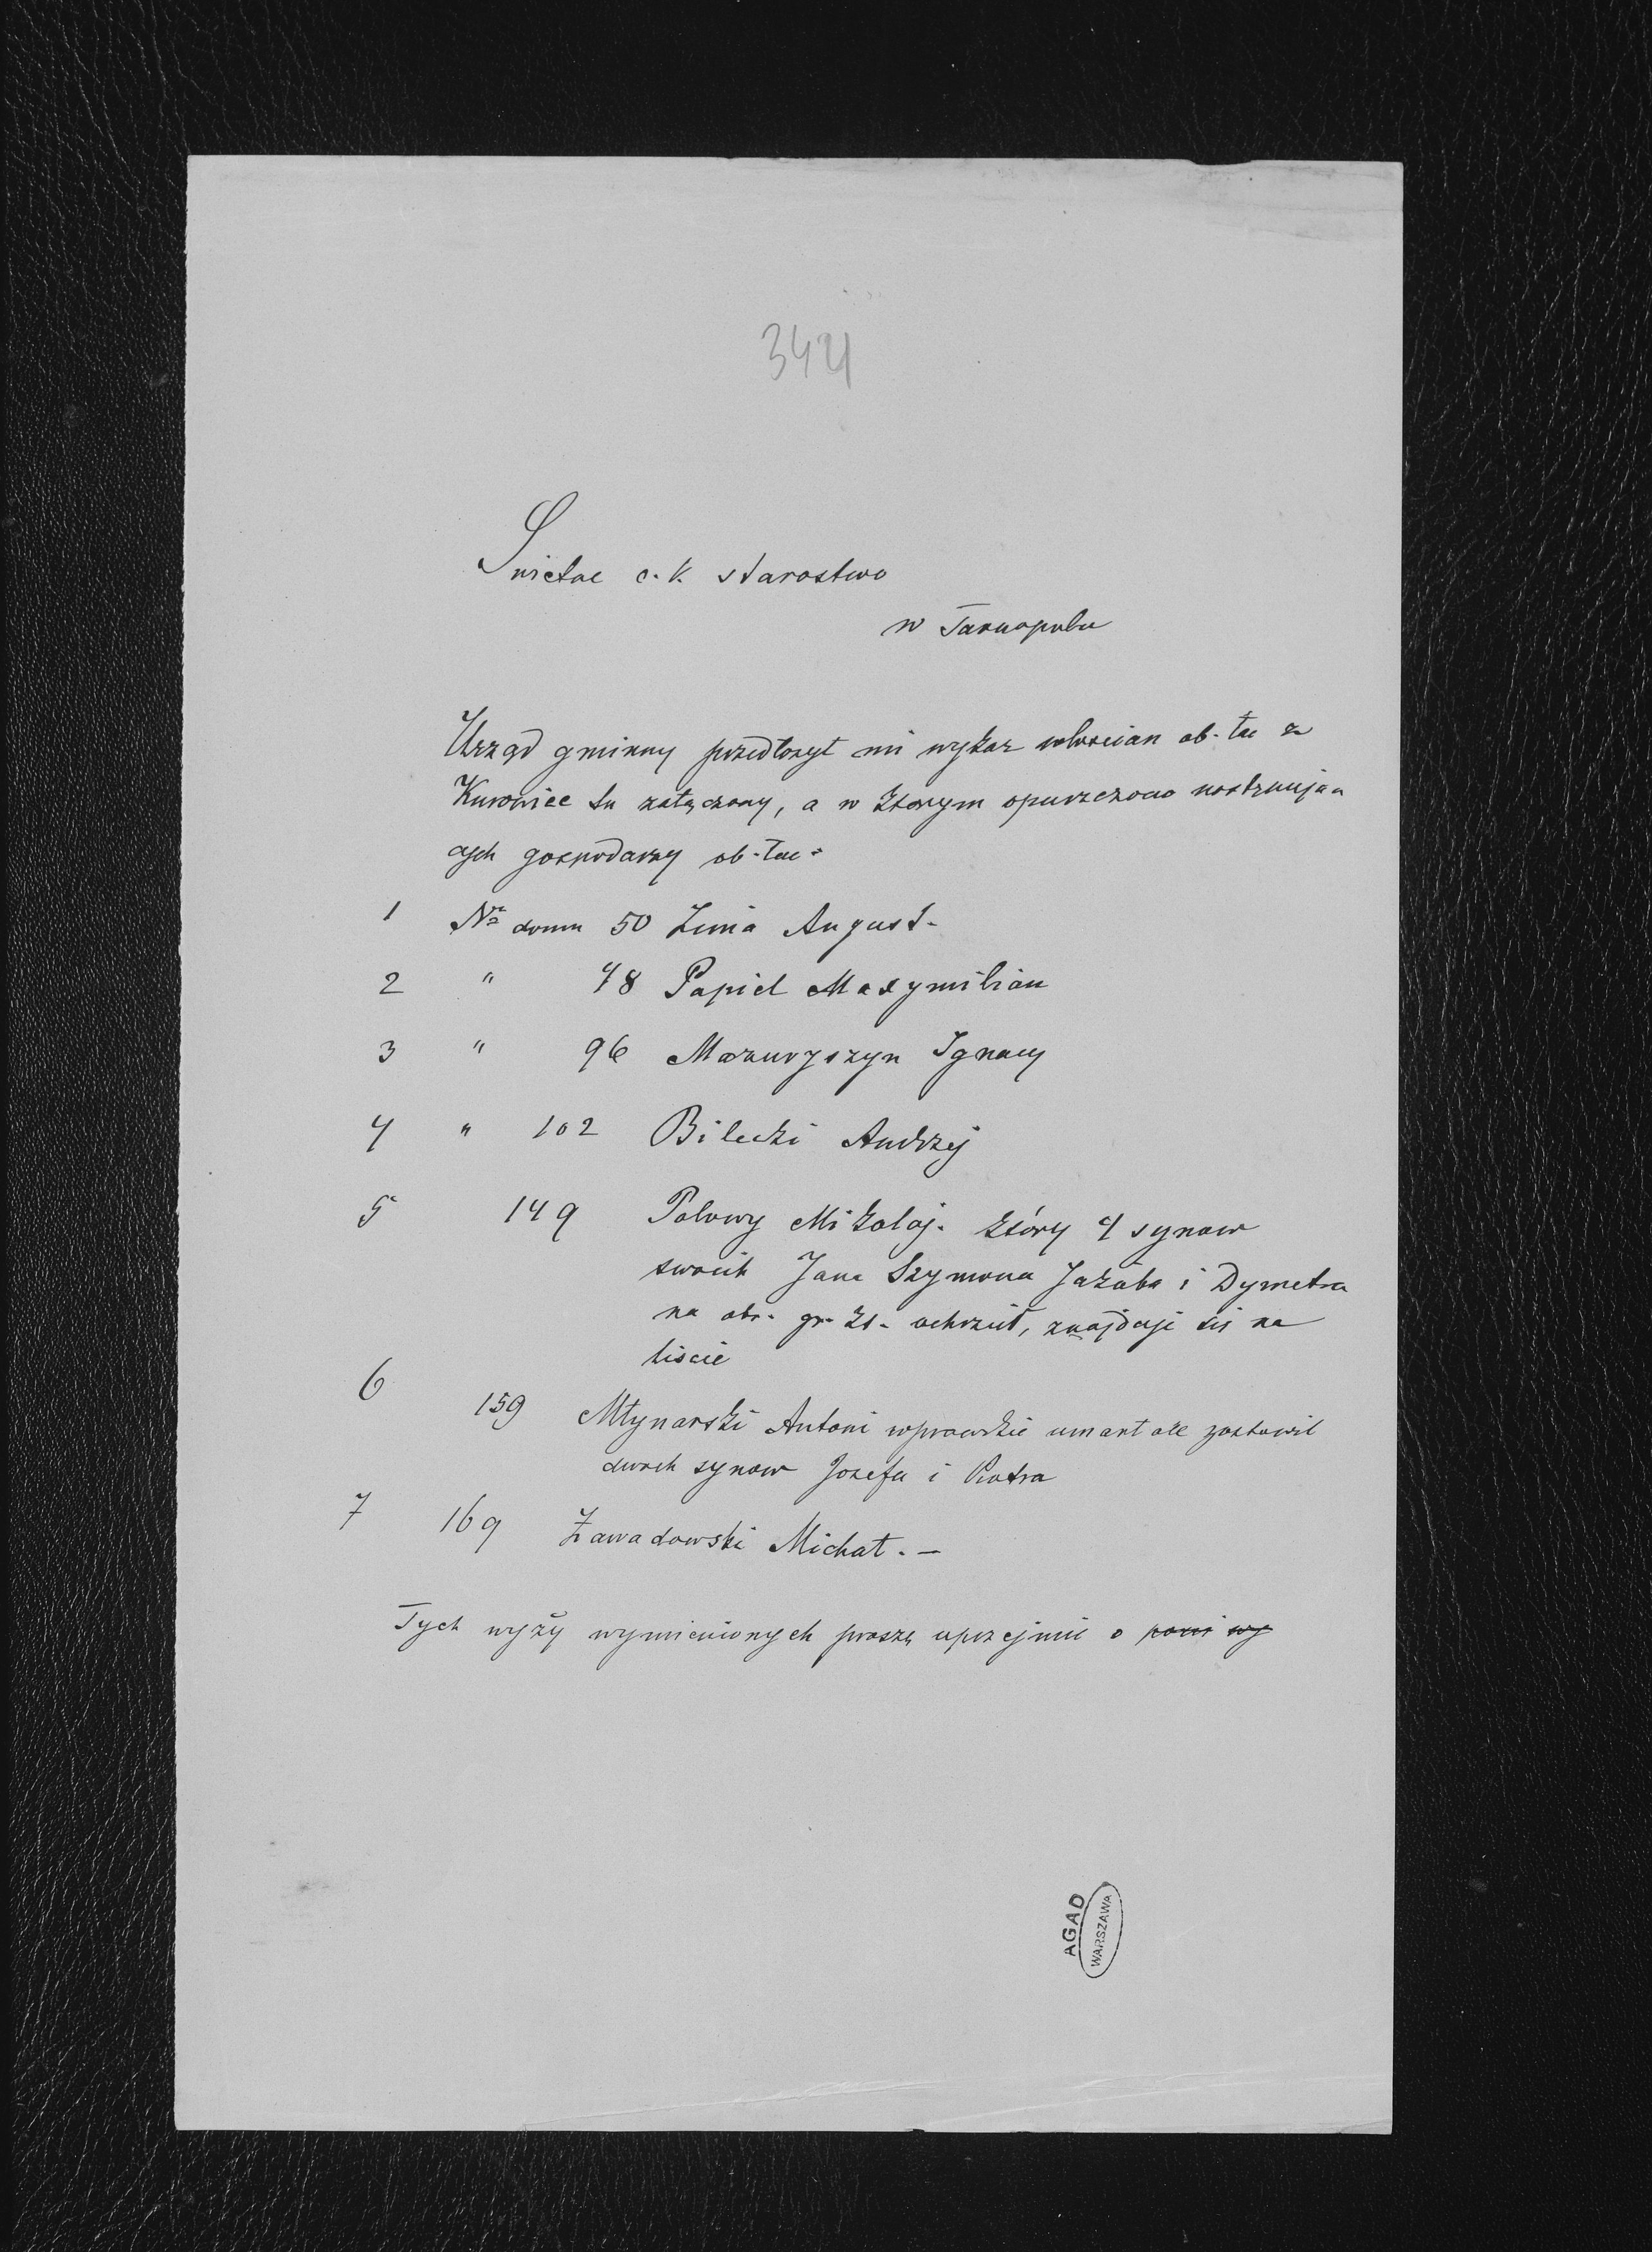 344
Swietne c. k. starostwo
w Tarnopolu
Urząd gminny przedłożył mi wykaz włoscian ob. łac z
Kurowiec tu załączony, a w ktorym opuszczono nastempują
cych gospodarzy ob. łac.
1 Nr domu 50 Zima August.
2 " 78 Papiel Maxymilian
3 " 96 Mazuryszyn Ignacy
4 " 102 Bilecki Andrzej
5 149 Polowy Mikolaj. który 4 synow
swoich Jana Szymona Jakóba i Dymetra
na obr. gr. kt. ochrzcił, znajduje się na
liscie
6 159 Młynarski Antoni wprawdzie umarł ale zostawił
dwoch synow Jozefa i Piotra
7 169 Zawadowski Michał. —
Tych wyży wymienionych proszę uprzejmie o
AGAD
WARSZAWA